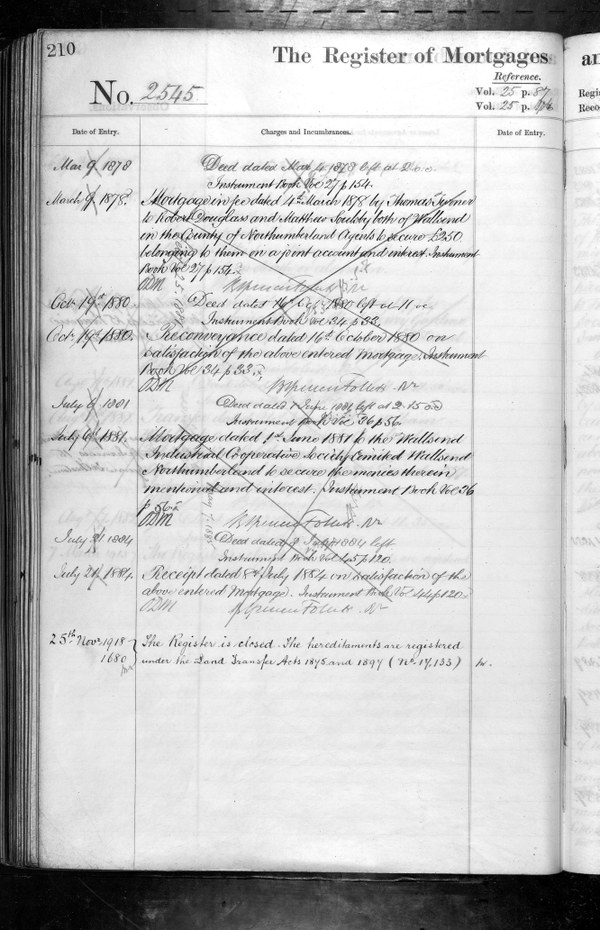 210
The Register of Mortgages
an
Reference.
No. 2545
Vol. 25 p. 87
Regi
Vol. 25 p.
Reco
Date of Entry.
Charges and Incumbrances.
Date of Entry.
Mar 9 1878
Deed dated Mar 4 1878 left at 2.0.0
Instrument Book Vol 27 p 154.
March 9th 1878.
Mortgage in fee dated 4th March 1878 by Thomas
to Robert Douglass and Matthew Soulsby both of Wallsend
in the County of Northumberland Agents to secure £250
belonging to them on a joint account and interest. Instrument
Book Vol 27 p 154.
ODM
Octr 19th 1880
Deed dated 16th Octr 1880 left at 11
Instrument Book Vol 34 p 33.
Octr 19th 1880.
Reconveyance dated 16th October 1880 on
satisfaction of the above entered Mortgage. Instrument
Book Vol 34 p 33.
ODM
July 6 1881
Deed dated 1 June 1881 left at 2.15
Instrument Book Vol 36 p 56.
July 6th 1881.
Mortgage dated 1st June 1881 to the Wallsend
Industrial Cooperative Society Limited Wallsend
Northumberland to secure the monies therein
mentioned and interest. Instrument Book Vol 36
p 56.
ODM
July 21. 1884
Deed dated 8 July 1884 left
Instrument Book Vol 45 p 120.
July 21st 1884.
Receipt dated 8th July 1884 on satisfaction of the
above entered Mortgage. Instrument Book Vol 44 p 120.
ODM
25th Novr 1918
The Register is closed. The hereditaments are registered
1680
under the Land Transfer Acts 1875 and 1897 (No. 17,133)